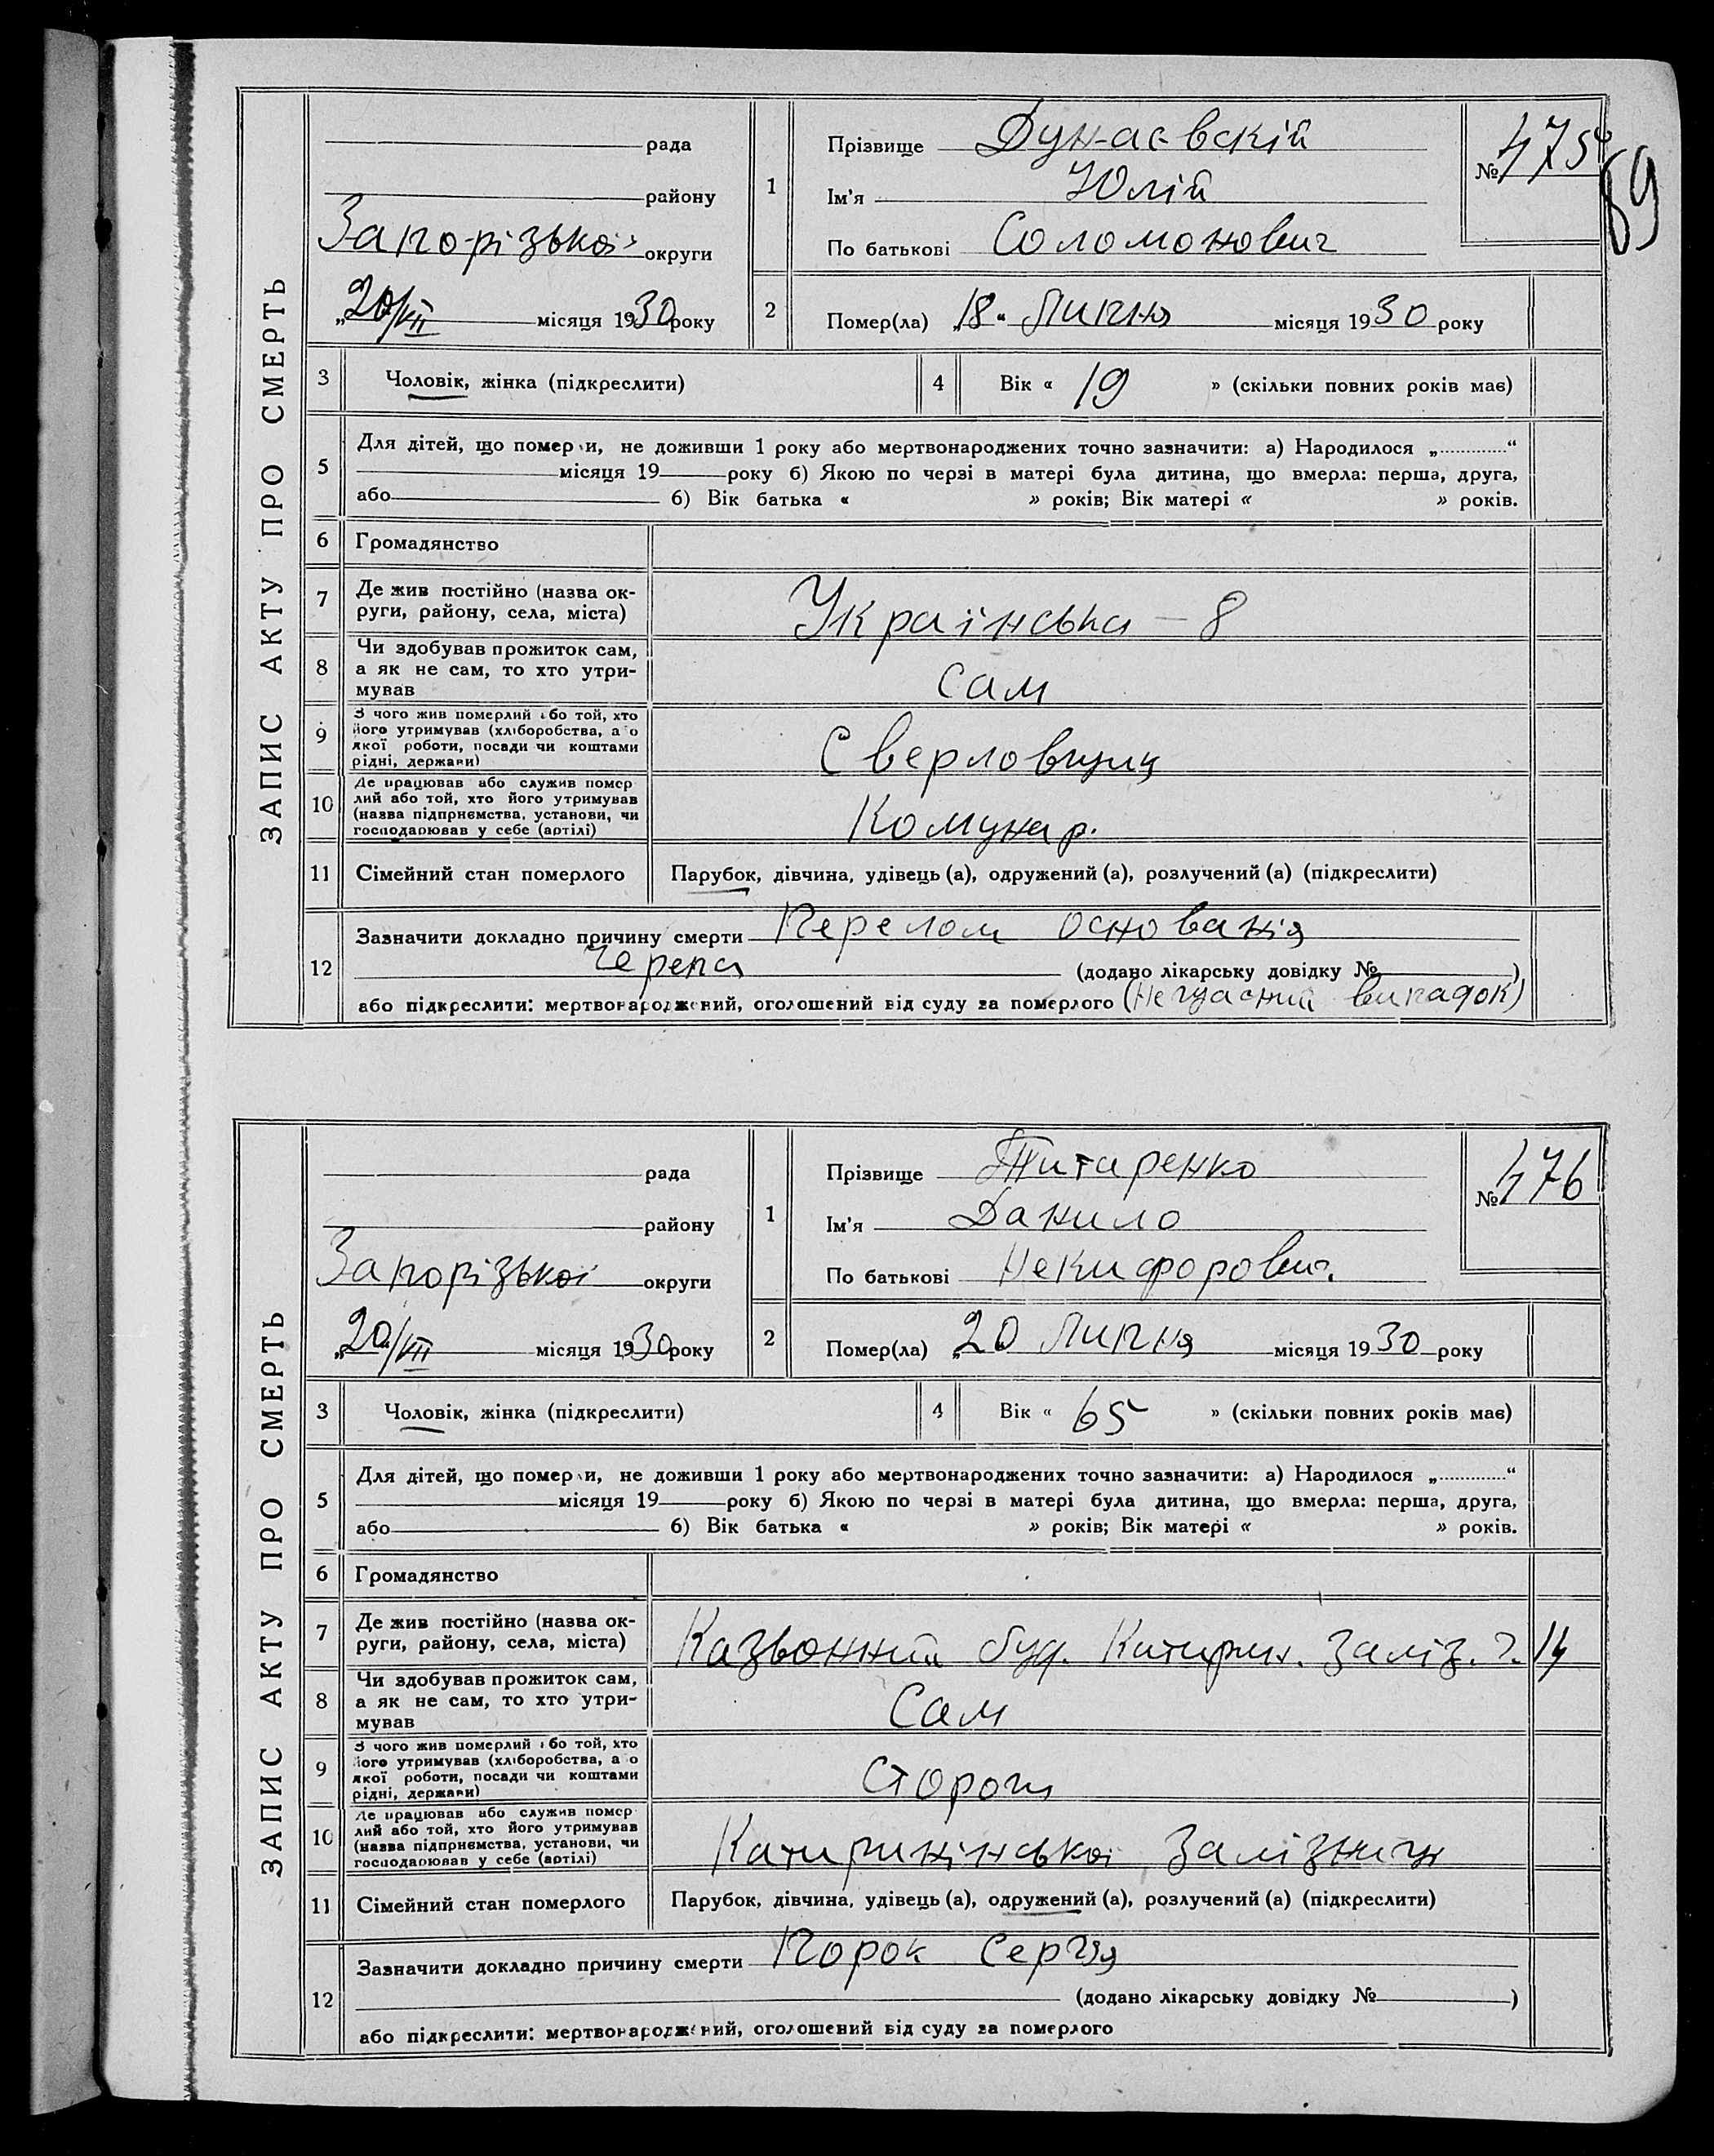 ЗАПИС АКТУ ПРО СМЕРТЬ
рада
району
Запорізької округи
„20/VII місяця 1930 року
1
Прізвище Дунаєвскій
Ім'я Юлій
По батькові Соломонович
№ 475
89
2
Помер(ла) „18“ Липня місяця 1930 року
3 Чоловік, жінка (підкреслити)
4 Вік « 19 » (скільки повних років має)
5 Для дітей, що померли, не доживши 1 року або мертвонароджених точно зазначити: а) Народилося „............“
місяця 19 року б) Якою по черзі в матері була дитина, що вмерла: перша, друга,
або б) Вік батька « » років; Вік матері « » років.
6 Громадянство
7 Де жив постійно (назва ок-
руги, району, села, міста)
Українська – 8
8 Чи здобував прожиток сам,
а як не сам, то хто утри-
мував
сам
9 З чого жив померлий або той, хто
його утримував (хліборобства, або
якої роботи, посади чи коштами
рідні, держави)
Сверловщиц
10 Де працював або служив помер
лий або той, хто його утримував
(назва підприємства, установи, чи
господарював у себе (артілі)
Комунар.
11 Сімейний стан померлого Парубок, дівчина, удівець (а), одружений (а), розлучений (а) (підкреслити)
12 Зазначити докладно причину смерти Перелом основанія
черепа (додано лікарську довідку № )
або підкреслити: мертвонароджений, оголошений від суду за померлого (Нещасний випадок)
ЗАПИС АКТУ ПРО СМЕРТЬ
рада
району
Запорізької округи
„20/VII місяця 1930 року
1
Прізвище Титаренко
Ім'я Данило
По батькові Некифорович.
№ 476
2
Помер(ла) „20 Липня місяця 1930 року
3 Чоловік, жінка (підкреслити)
4 Вік « 65 » (скільки повних років має)
5 Для дітей, що померли, не доживши 1 року або мертвонароджених точно зазначити: а) Народилося „............“
місяця 19 року б) Якою по черзі в матері була дитина, що вмерла: перша, друга,
або б) Вік батька « » років; Вік матері « » років.
6 Громадянство
7 Де жив постійно (назва ок-
руги, району, села, міста)
Казьонний буд. Катерин. Заліз. 14
8 Чи здобував прожиток сам,
а як не сам, то хто утри-
мував
Сам
9 З чого жив померлий або той, хто
його утримував (хліборобства, або
якої роботи, посади чи коштами
рідні, держави)
Сторож
10 Де працював або служив помер
лий або той, хто його утримував
(назва підприємства, установи, чи
господарював у себе (артілі)
Катиринінської Залізниці
11 Сімейний стан померлого Парубок, дівчина, удівець (а), одружений (а), розлучений (а) (підкреслити)
12 Зазначити докладно причину смерти Порок Серця
(додано лікарську довідку № )
або підкреслити: мертвонароджений, оголошений від суду за померлого